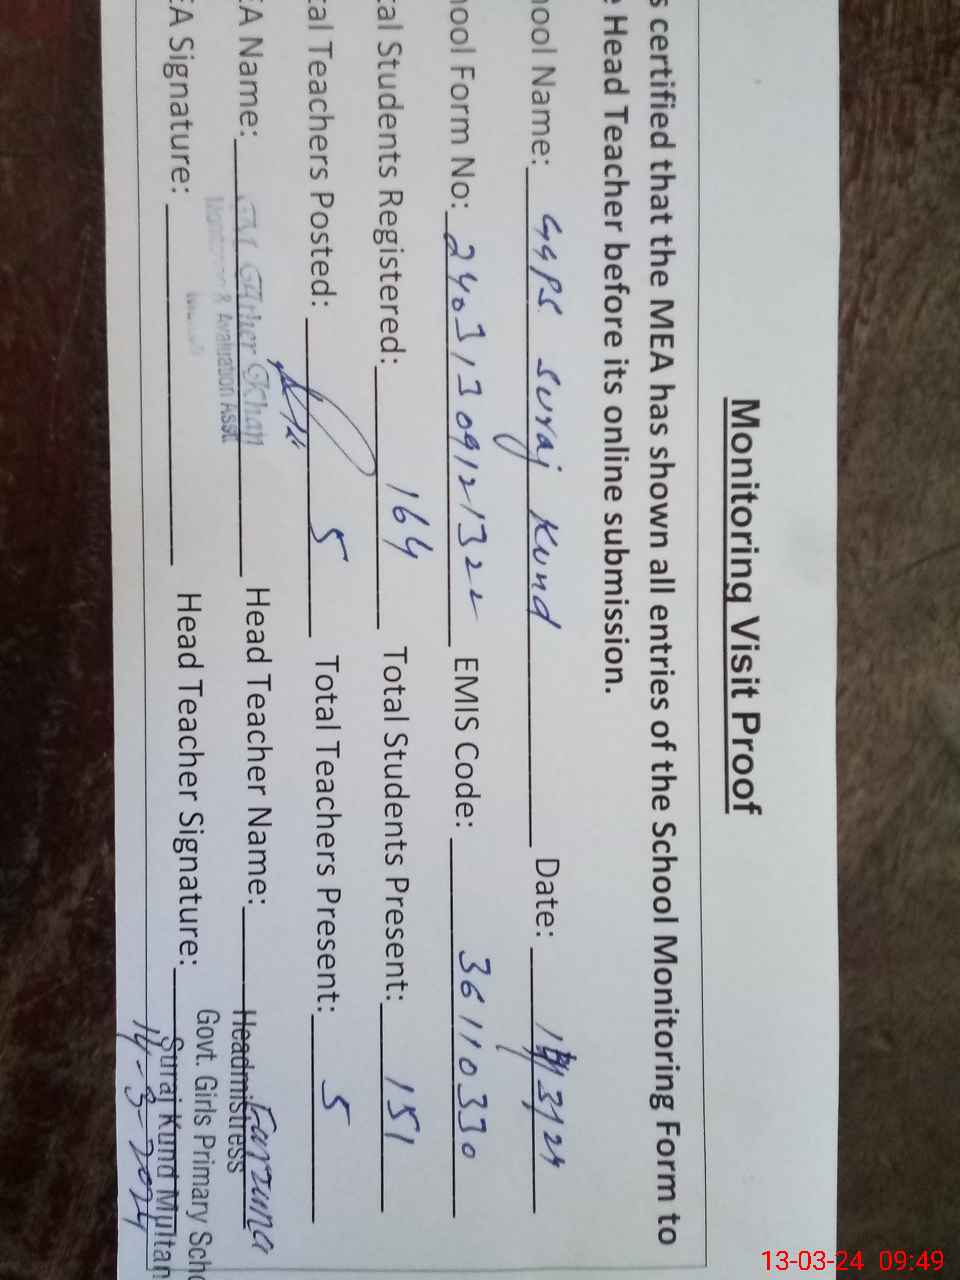 Monitoring Visit Proof
s certified that the MEA has shown all entries of the School Monitoring Form to
e Head Teacher before its online submission.
hool Name: GGPS Suraj Kund Date: 3/24
hool Form No: 24031309121322 EMIS Code: 36110330
tal Students Registered: 164 Total Students Present: 151
tal Teachers Posted: 5 Total Teachers Present: 5
EA Name: Khan Head Teacher Name: Farzana
& Avaluation Asst
Headmistress
EA Signature: Head Teacher Signature:
Govt. Girls Primary Scho
Suraj Kund Multan
14-3-2024
13-03-24 09:49